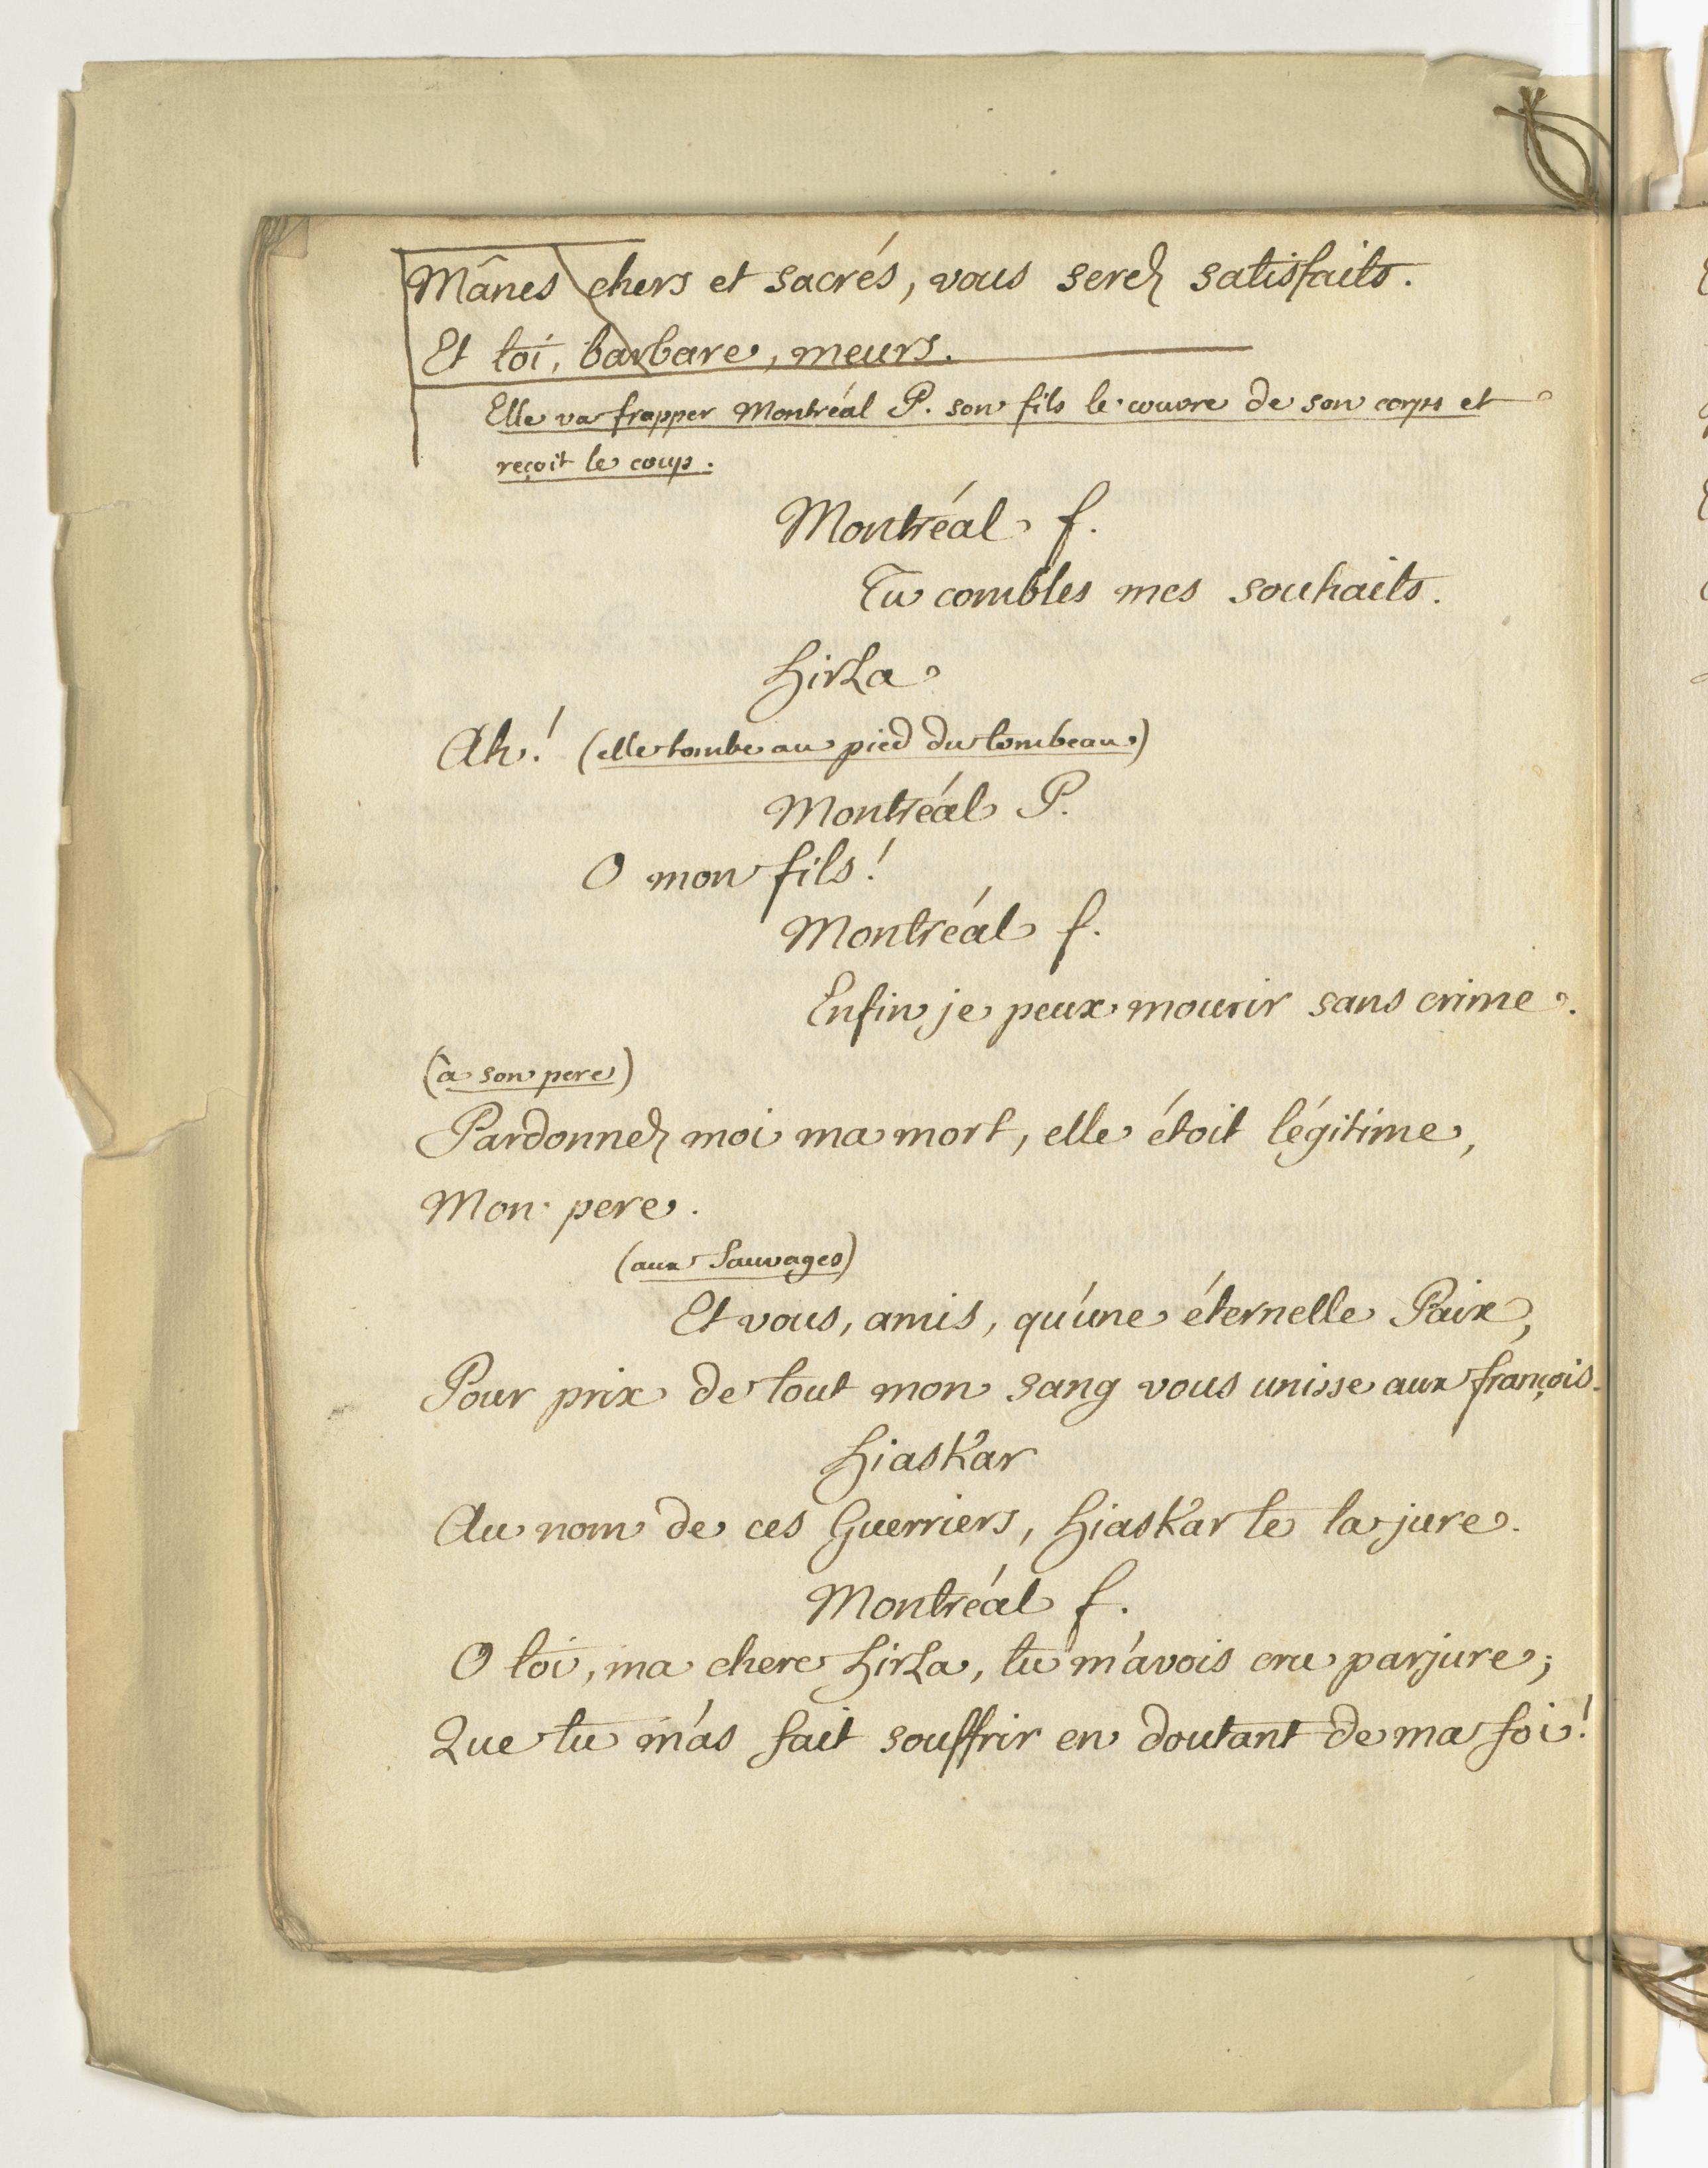 Mânes chers et sacrés, vous serez satisfaits.
Et toi, barbare, meurs.
Elle va frapper Montréal P. son fils le couvre de son corps et
reçoit le coup.
Montréal f.
Tu combles mes souhaits.
hirza
Ah! (elle tombe au pied du tombeau)
Montréal P.
O mon fils!
Montréal f.
Enfin je peux mourir sans crime.
(à son pere)
Pardonnez moi ma mort, elle étoit légitime,
Mon pere.
(aux Sauvages)
Et vous, amis, qu'une éternelle Paix,
Pour prix de tout mon sang vous unisse aux françois.
hiasKar
Au nom de ces Guerriers, hiasKar te la jure.
Montréal f.
O toi, ma chere hirza, tu m'avois cru parjure;
Que tu m'as fait souffrir en doutant de ma foi!